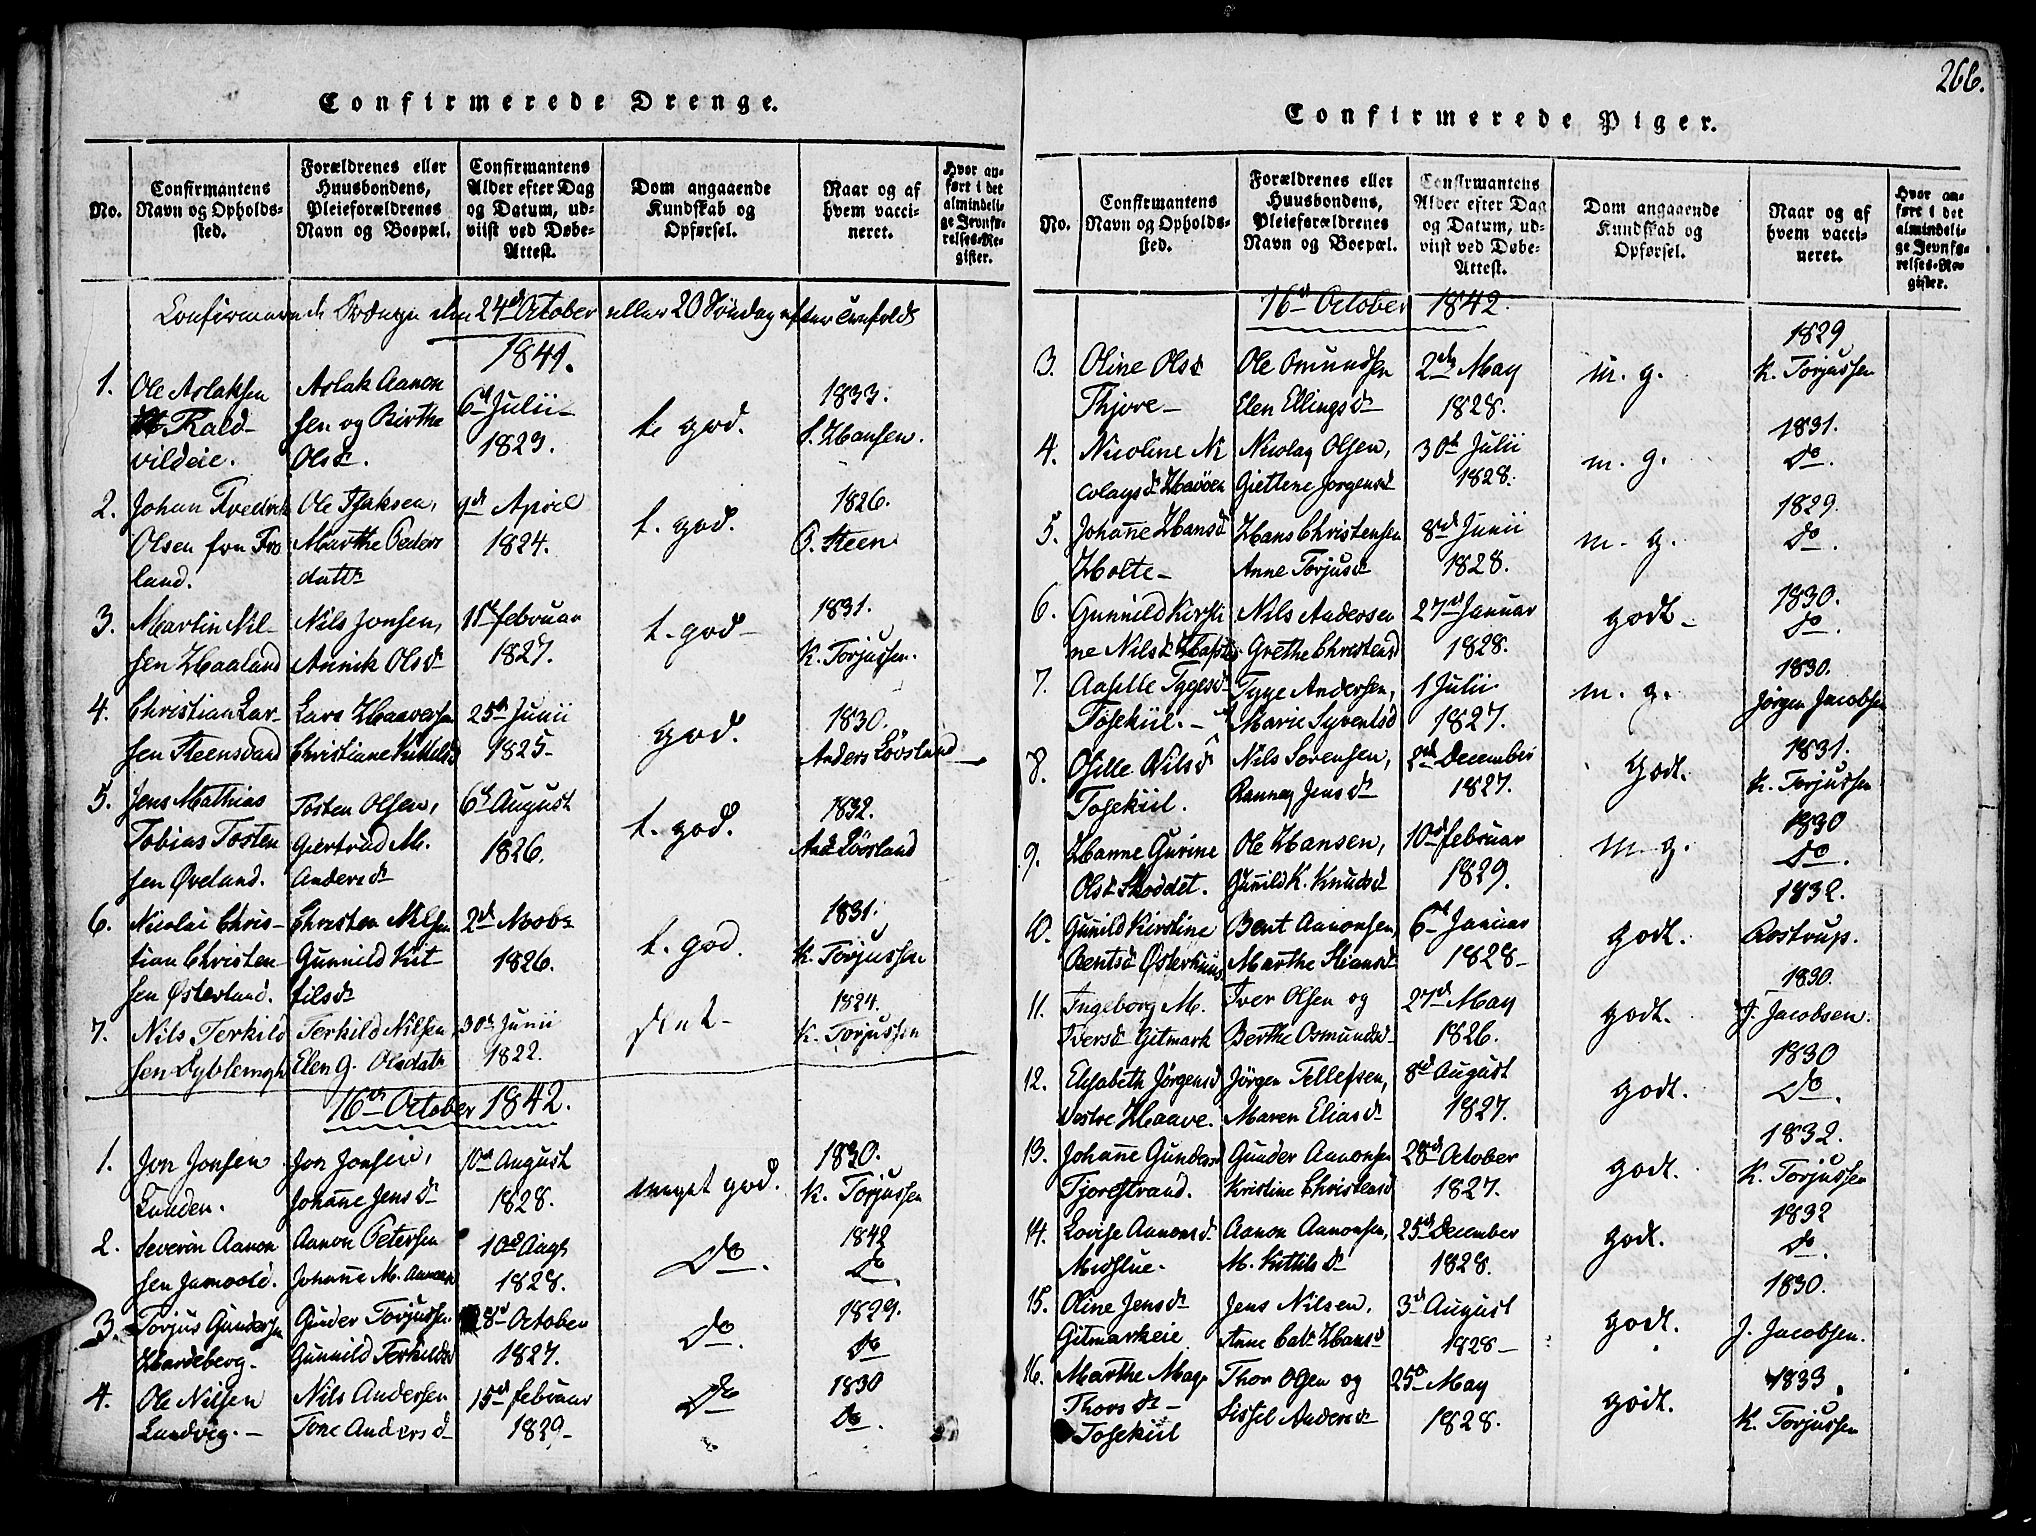 Confirmerede Drenge.
No.
Confirmantens
Navn og Opholds-
sted.
Forældrenes eller
Huusbondens,
Pleieforældrenes
Navn og Boepæl.
Confirmantens
Alder efter Dag
og Datum, ud-
viist ved Døbe-
Attest.
Dom angaaende
Kundskab og
Opførsel.
Naar og af
hvem vacci-
neret.
Hvor an-
ført i det
almindeli-
ge Jevnfø-
relses-Re-
gister.
den 24d October eller 20 Søndag efter
1841.
1.
Ole Aslaksen
Rald-
vildeie.
Aslak Aanon
sen og Birthe
Olsd.
6d Julii
1823.
t. god.
1833.
S. Hansen.
2.
Johan Fredrik
Olsen fra Fro
land.
Ole Isaksen,
Marthe Peders
datr
9d April
1824.
t. god.
1826.
P. Steen
3.
Martin Nil-
sen Haaland
Nils Jonsen,
Annik Olsd
11d februar
1827.
t. god
1831.
K. Torjussen.
4.
Christian Lar-
sen Steensvand
Lars Haaversen
Christianne Kittilsd
25d Junii
1825
god.
1830.
Anders Löösland
5.
Jens Mathias
Tobias Tosten
sen Øveland.
Tosten Olsen,
Giertrud M.
Andersd
6d August
1826.
t. god.
1832.
And Löösland
6.
Nicolai Chris-
tian Christen-
sen Østerland.
Christen Nilsen
Gunnild Kit-
tilsd
2d Novbr
1826.
t. god.
1831.
K. Torjussen
7.
Nils Terkild
sen Dyblemyh
Terkild Nilsen,
Elen G. Olsdatr
30d Junii
1822.
1824.
K. Torjussen
16de October 1842.
1.
Jon Jonsen
Lunden.
Jon Jonsen,
Johanne Jensd
10d August
1828.
meget god.
1830.
K. Torjussen
2.
Severin Aanon
sen
Aanon Petersen
Johanne M.
10d Augs
1828.
Do.
1842
Do.
3.
Torjus Gundersen
Hardeberg.
Gunder Torjussen
Gunnild Terkildsd
28d October
1827.
Do.
1829.
Do
4.
Ole Nilsen
Lundvig.
Nils Andersen
Tone Andersd
15d februar
1829
Do
1830
Do.
266.
Confirmerede Piger.
No.
Confirmantens
Navn og Opholds-
sted.
Forældrenes eller
Huusbondens,
Pleieforældrenes
Navn og Boepæl.
Confirmantens
Alder efter Dag
og Datum, ud-
viist ved Døbe-
Attest.
Dom angaaende
Kundskab og
Opførsel.
Naar og af
hvem vacci-
neret.
Hvor an-
ført i det
almindeli-
ge Jevnfø-
relses-Re-
gister.
16d October 1842.
3.
Oline Olsd
Thjore
Ole Omundsen
Elen Ellingsd
2d May
1828.
m. g.
1829
K. Torjussen
4.
Nicoline Ni
colaysd Havöen
Nicolay Olsen,
Giettene Jorgensd
30d Julii
1828.
m. g.
1831.
Do.
5.
Johanne Hansd
Holte
Hans Christensen
Anne Torjusd
8d Junii
1828.
m. g.
1829.
Do.
6.
Gunnild Kirsti
ne Nilsd
Nils Andersen
Grethe Christensd
27d Januar
1828.
godt
1830.
Do.
7.
Aasille Tygesd
Tosekiil.
Tyge Andersen,
Marie Syvertsd
1 Julii
1827.
m. g.
1830.
Jörgen Jacobsen
8.
Osille Nilsd
Tosekiil.
Nils Sorensen,
Rannag Jensd
2d December
1827.
Godt.
1831.
K. Torjussen
9.
Hanne Gurine
Olsd Skoddet.
Ole Hansen,
Gunild K. Knudsd
10d februar
1829.
m. g.
1830
Do.
10.
Gunild Kirstine
Bentsd Østerhuus
Bent Aanonsen,
Marthe Stiansd
6d Januar
1828
godt.
1832.
Aostrup.
11.
Ingeborg M.
Iversd Gitmark
Iver Olsen og
Berthe Osmundsd
27d May
1826.
godt.
1830.
J. Jacobsen.
12.
Elisabeth Jörgensd
Vestre Haave.
Jörgen Tellefsen,
Maren Eliasd
8d August
1827.
godt.
1830
Do.
13.
Johanne Gundersd
Tjorestrand.
Gunder Aanonsen
Kristine Christensd
28d October
1827.
godt.
1832.
K. Torjussen
14.
Lovise Aanonsd
Midslue.
Aanon Aanonsen,
M. Kittilsd
25d December
1828.
godt.
1832
Do.
15.
Oline Jensd
Gitmarkeie
Jens Nilsen,
Anne Catr Hansd
3d August
1828
godt.
1830.
J. Jacobsen.
16.
Marthe Mag.
Thorsd
Tosekiil
Thor Olsen og
Sissel Andersd
25d May
1828.
godt.
1833.
K. Torjussen